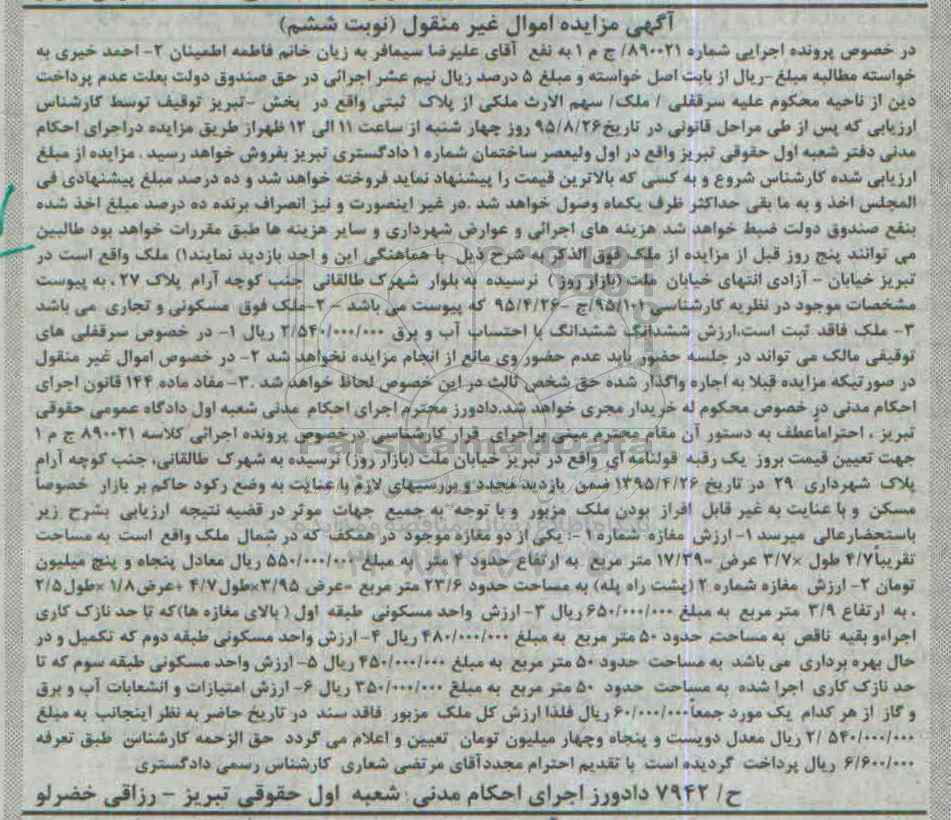 آگهی مزایده اموال غیر منقول (نوبت ششم)
در خصوص پرونده اجرایی شماره ۸۹۰۰۲۱/ ج م ۱ به نفع آقای علیرضا سیمافر به زیان خانم فاطمه اطمینان ۲- احمد خیری به
خواسته مطالبه مبلغ -ریال از بابت اصل خواسته و مبلغ ۵ درصد ریال نیم عشر اجرائی در حق صندوق دولت بعلت عدم پرداخت
دین از ناحیه محکوم علیه سرقفلی / ملک/ سهم الارث ملکی از پلاک ثبتی واقع در بخش -تبریز توقیف توسط کارشناس
ارزیابی که پس از طی مراحل قانونی در تاریخ۹۵/۸/۲۶ روز چهار شنبه از ساعت ۱۱ الی ۱۲ ظهراز طریق مزایده دراجرای احکام
مدنی دفتر شعبه اول حقوقی تبریز واقع در اول ولیعصر ساختمان شماره ۱ دادگستری تبریز بفروش خواهد رسید . مزایده از مبلغ
ارزیابی شده کارشناس شروع و به کسی که بالاترین قیمت را پیشنهاد نماید فروخته خواهد شد و ده درصد مبلغ پیشنهادی فی
المجلس اخذ و به ما بقی حداکثر ظرف یکماه وصول خواهد شد .در غیر اینصورت و نیز انصراف برنده ده درصد مبلغ اخذ شده
بنفع صندوق دولت ضبط خواهد شد هزینه های اجرائی و عوارض شهرداری و سایر هزینه ها طبق مقررات خواهد بود طالبین
می توانند پنج روز قبل از مزایده از ملک فوق الذکر به شرح ذیل با هماهنگی این و احد بازدید نمایند۱) ملک واقع است در
تبریز خیابان - آزادی انتهای خیابان ملت (بازار روز ) نرسیده به بلوار شهرک طالقانی جنب کوچه آرام پلاک ۲۷ ، به پیوست
مشخصات موجود در نظریه کارشناسی ۹۵/۱۰۱/ج -۹۵/۴/۲۶ که پیوست می باشد ۲-ملک فوق مسکونی و تجاری می باشد
۳- ملک فاقد ثبت است.ارزش ششدانگ ششدانگ با احتساب آب و برق ۲/۵۴۰/۰۰۰/۰۰۰ ریال ۱- در خصوص سرقفلی های
توقیفی مالک می تواند در جلسه حضور یابد عدم حضور وی مانع از انجام مزایده نخواهد شد ۲- در خصوص اموال غیر منقول
در صورتیکه مزایده قبلا به اجاره واگذار شده حق شخص ثالث در این خصوص لحاظ خواهد شد .۳- مفاد ماده ۱۴۴ قانون اجرای
احکام مدنی در خصوص محکوم له خریدار مجری خواهد شد.دادورز محترم اجرای احکام مدنی شعبه اول دادگاه عمومی حقوقی
تبریز ، احتراماعطف به دستور آن مقام محترم مبنی براجرای قرار کارشناسی درخصوص پرونده اجرائی کلاسه ۸۹۰۰۲۱ ج م ۱
جهت تعیین قیمت بروز یک رقبه قولنامه ای واقع در تبریز خیابان ملت (بازار روز) نرسیده به شهرک طالقانی، جنب کوچه آرام
پلاک شهرداری ۲۹ در تاریخ ۱۳۹۵/۴/۲۶ ضمن بازدید مجدد و بررسیهای لازم با عنایت به وضع رکود حاکم بر بازار خصوصاً
مسکن و با عنایت به غیر قابل افراز بودن ملک مزبور و با توجه به جمیع جهات موثر در قضیه نتیجه ارزیابی بشرح زیر
باستحضارعالی میرسد ۱- ارزش مغازه شماره ۱ -: یکی از دو مغازه موجود در همکف که در شمال ملک واقع است به مساحت
تقریباً۴/۷ طول ×۳/۷ عرض =۱۷/۳۹ متر مربع به ارتفاع حدود ۴ متر به مبلغ ۵۵۰/۰۰۰/۰۰۰ ریال معادل پنجاه و پنج میلیون
تومان ۲- ارزش مغازه شماره ۲ (پشت راه پله) به مساحت حدود ۲۳/۶ متر مربع =عرض ۳/۹۵×طول۴/۷ +عرض ۱/۸ ×طول۲/۵
، به ارتفاع ۳/۹ متر مربع به مبلغ ۶۵۰/۰۰۰/۰۰۰ ریال ۳- ارزش واحد مسکونی طبقه اول ( بالای مغازه ها)که تا حد نازک کاری
اجراءو بقیه ناقص به مساحت حدود ۵۰ متر مربع به مبلغ ۴۸۰/۰۰۰/۰۰۰ ریال ۴- ارزش واحد مسکونی طبقه دوم که تکمیل و در
حال بهره برداری می باشد به مساحت حدود ۵۰ متر مربع به مبلغ ۴۵۰/۰۰۰/۰۰۰ ریال ۵- ارزش واحد مسکونی طبقه سوم که تا
حد نازک کاری اجرا شده به مساحت حدود ۵۰ متر مربع به مبلغ ۳۵۰/۰۰۰/۰۰۰ ریال ۶- ارزش امتیازات و انشعابات آب و برق
و گاز از هر کدام یک مورد جمعاً۶۰/۰۰۰/۰۰۰ ریال فلذا ارزش کل ملک مزبور فاقد سند در تاریخ حاضر به نظر اینجانب به مبلغ
۲/ ۵۴۰/۰۰۰/۰۰۰ ریال معدل دویست و پنجاه وچهار میلیون تومان تعیین و اعلام می گردد حق الزحمه کارشناس طبق تعرفه
۶/۶۰۰/۰۰۰ ریال پرداخت گردیده است با تقدیم احترام مجددآقای مرتضی شعاری کارشناس رسمی دادگستری
ح/ ۷۹۴۲ دادورز اجرای احکام مدنی شعبه اول حقوقی تبریز - رزاقی خضرلو